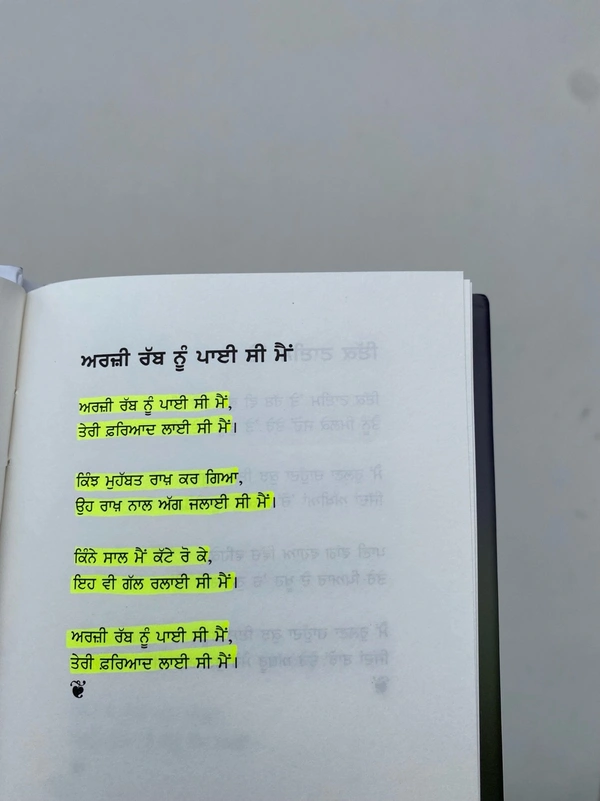 ਅਰਜ਼ੀ ਰੱਬ ਨੂੰ ਪਾਈ ਸੀ ਮੈਂ
ਅਰਜ਼ੀ ਰੱਬ ਨੂੰ ਪਾਈ ਸੀ ਮੈਂ,
ਤੇਰੀ ਫ਼ਰਿਆਦ ਲਾਈ ਸੀ ਮੈਂ।
ਕਿੰਝ ਮੁਹੱਬਤ ਰਾਖ਼ ਕਰ ਗਿਆ,
ਉਹ ਰਾਖ਼ ਨਾਲ ਅੱਗ ਜਲਾਈ ਸੀ ਮੈਂ।
ਕਿੰਨੇ ਸਾਲ ਮੈਂ ਕੱਟੇ ਰੋ ਕੇ,
ਇਹ ਵੀ ਗੱਲ ਰਲਾਈ ਸੀ ਮੈਂ।
ਅਰਜ਼ੀ ਰੱਬ ਨੂੰ ਪਾਈ ਸੀ ਮੈਂ,
ਤੇਰੀ ਫ਼ਰਿਆਦ ਲਾਈ ਸੀ ਮੈਂ।